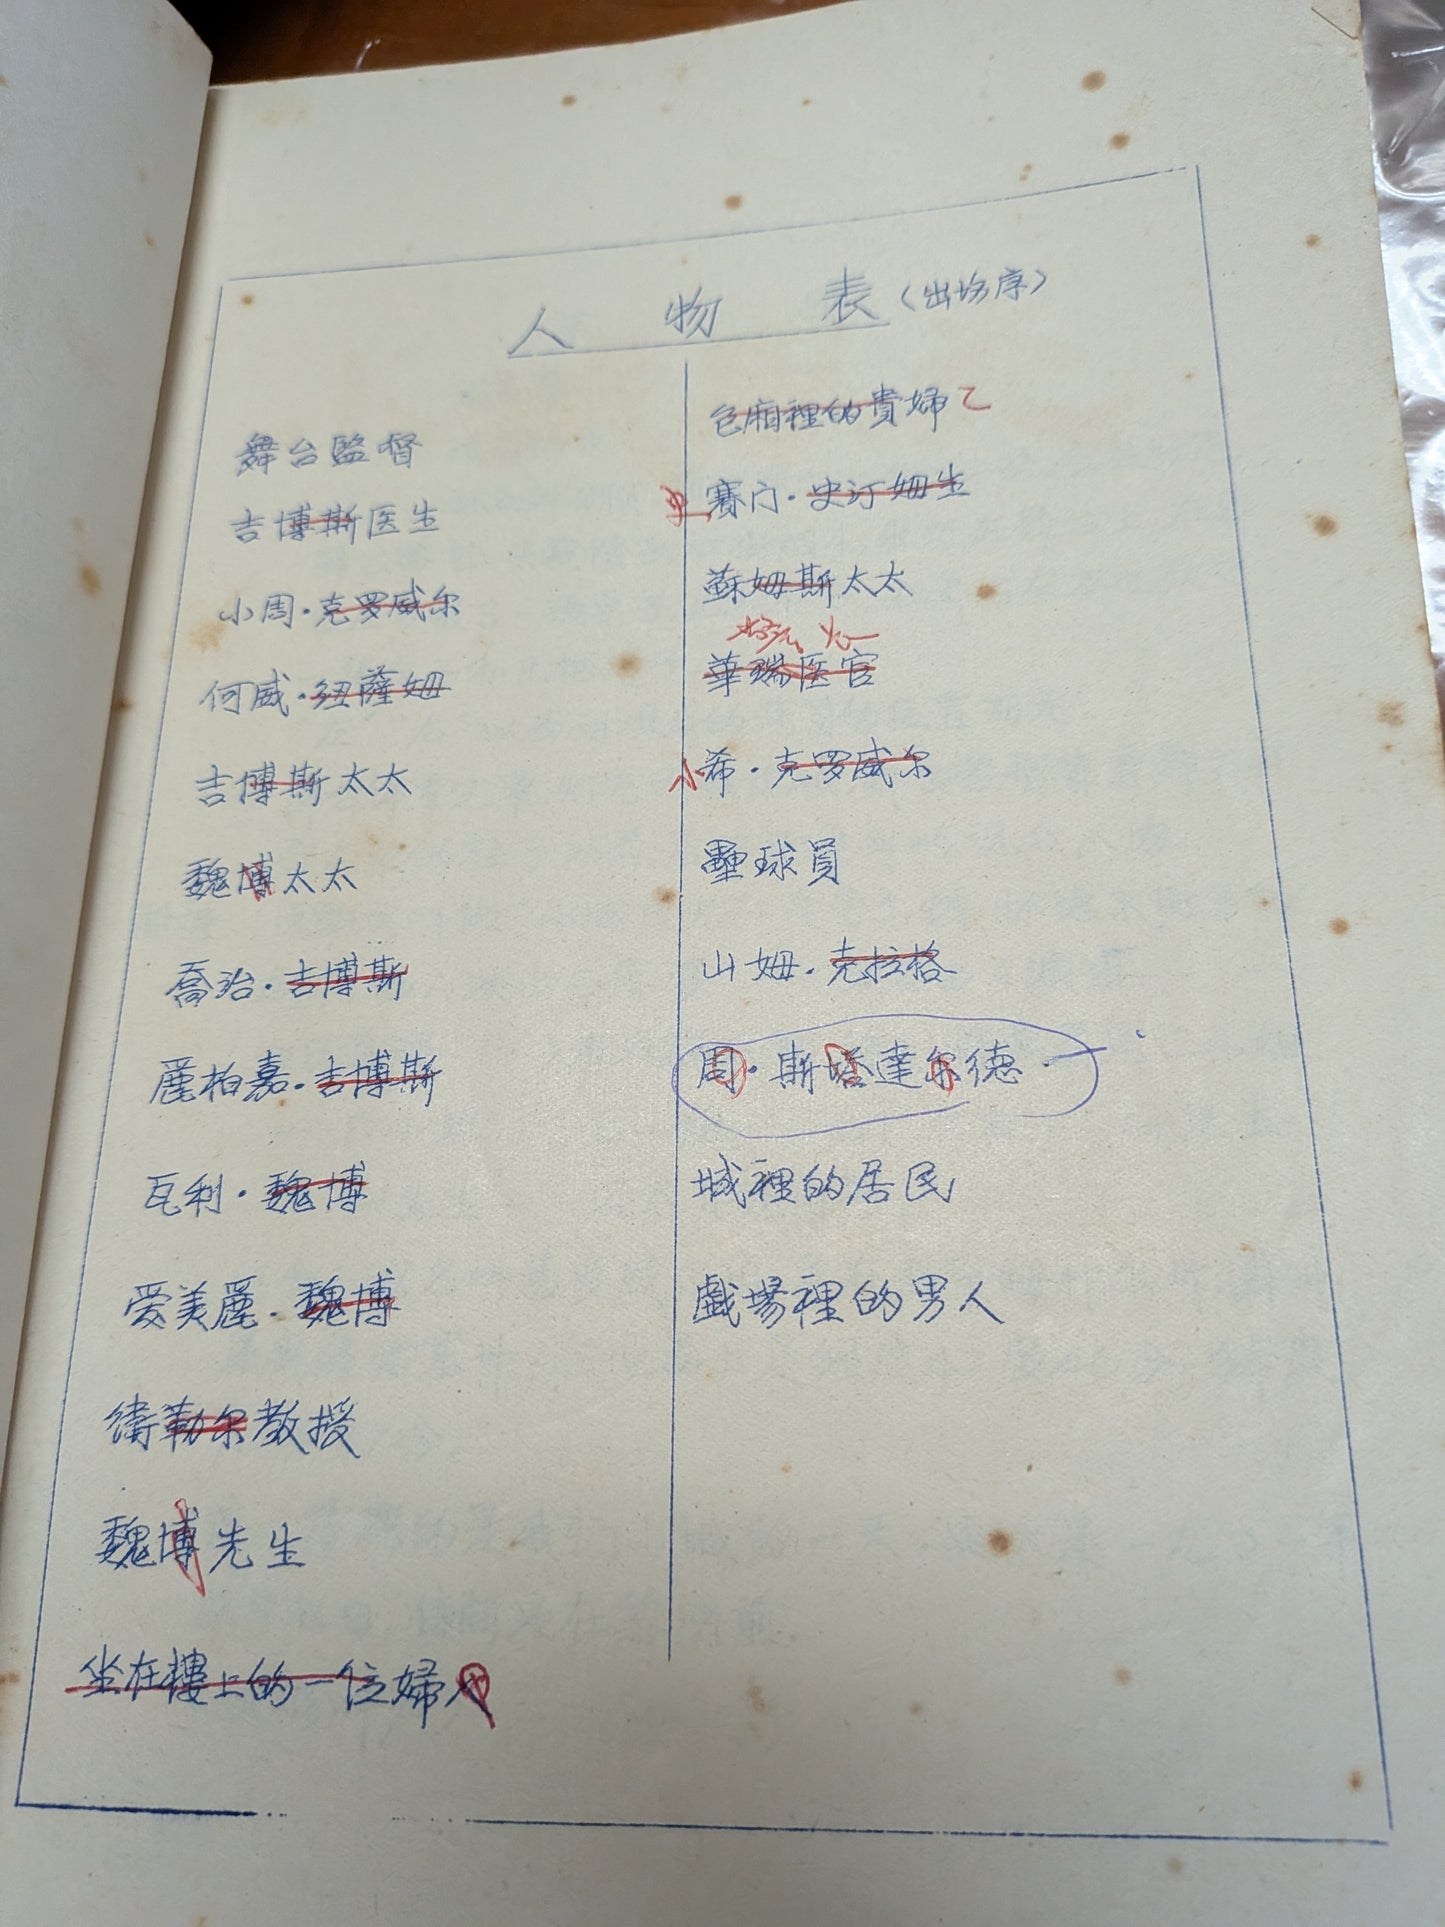 人物表（出场序）
舞台監督
吉博斯医生
小周·克罗威尔
何威·纽薩姆
吉博斯太太
魏博太太
喬治·吉博斯
麗柏嘉·吉博斯
瓦利·魏博
爱美麗·魏博
衛勒尔教授
魏博先生
坐在樓上的一位婦人甲
包廂裡的貴婦乙
史賽门·史汀姆生
蘇姆斯太太
華瑞医官
小希·克罗威尔
壘球員
山姆·克拉格
周·斯塔達尔德
城裡的居民
戲場裡的男人